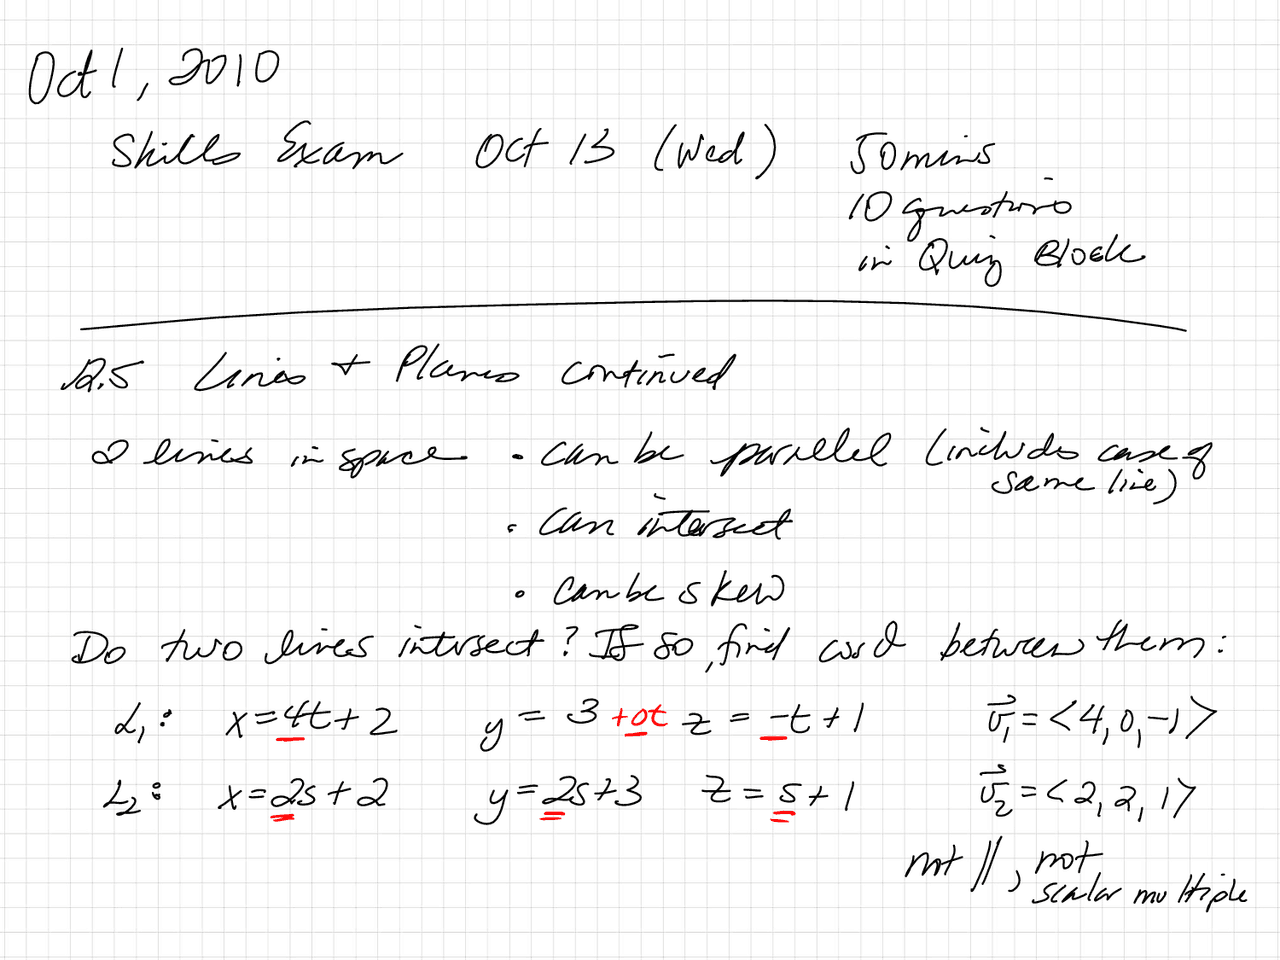 Oct 1, 2010
Skills Exam Oct 13 (Wed) 50 mins
10 questions
in Quiz Block
12.5 Lines + Planes continued
2 lines in space • can be parallel (includes case of
same line)
• can intersect
• can be skew
Do two lines intersect? If so, find cos θ between them:
L₁: x = 4t + 2 y = 3 + 0t z = -t + 1 v⃗₁ = <4, 0, -1>
L₂: x = 2s + 2 y = 2s + 3 z = s + 1 v⃗₂ = <2, 2, 1>
not ||, not
scalar multiple